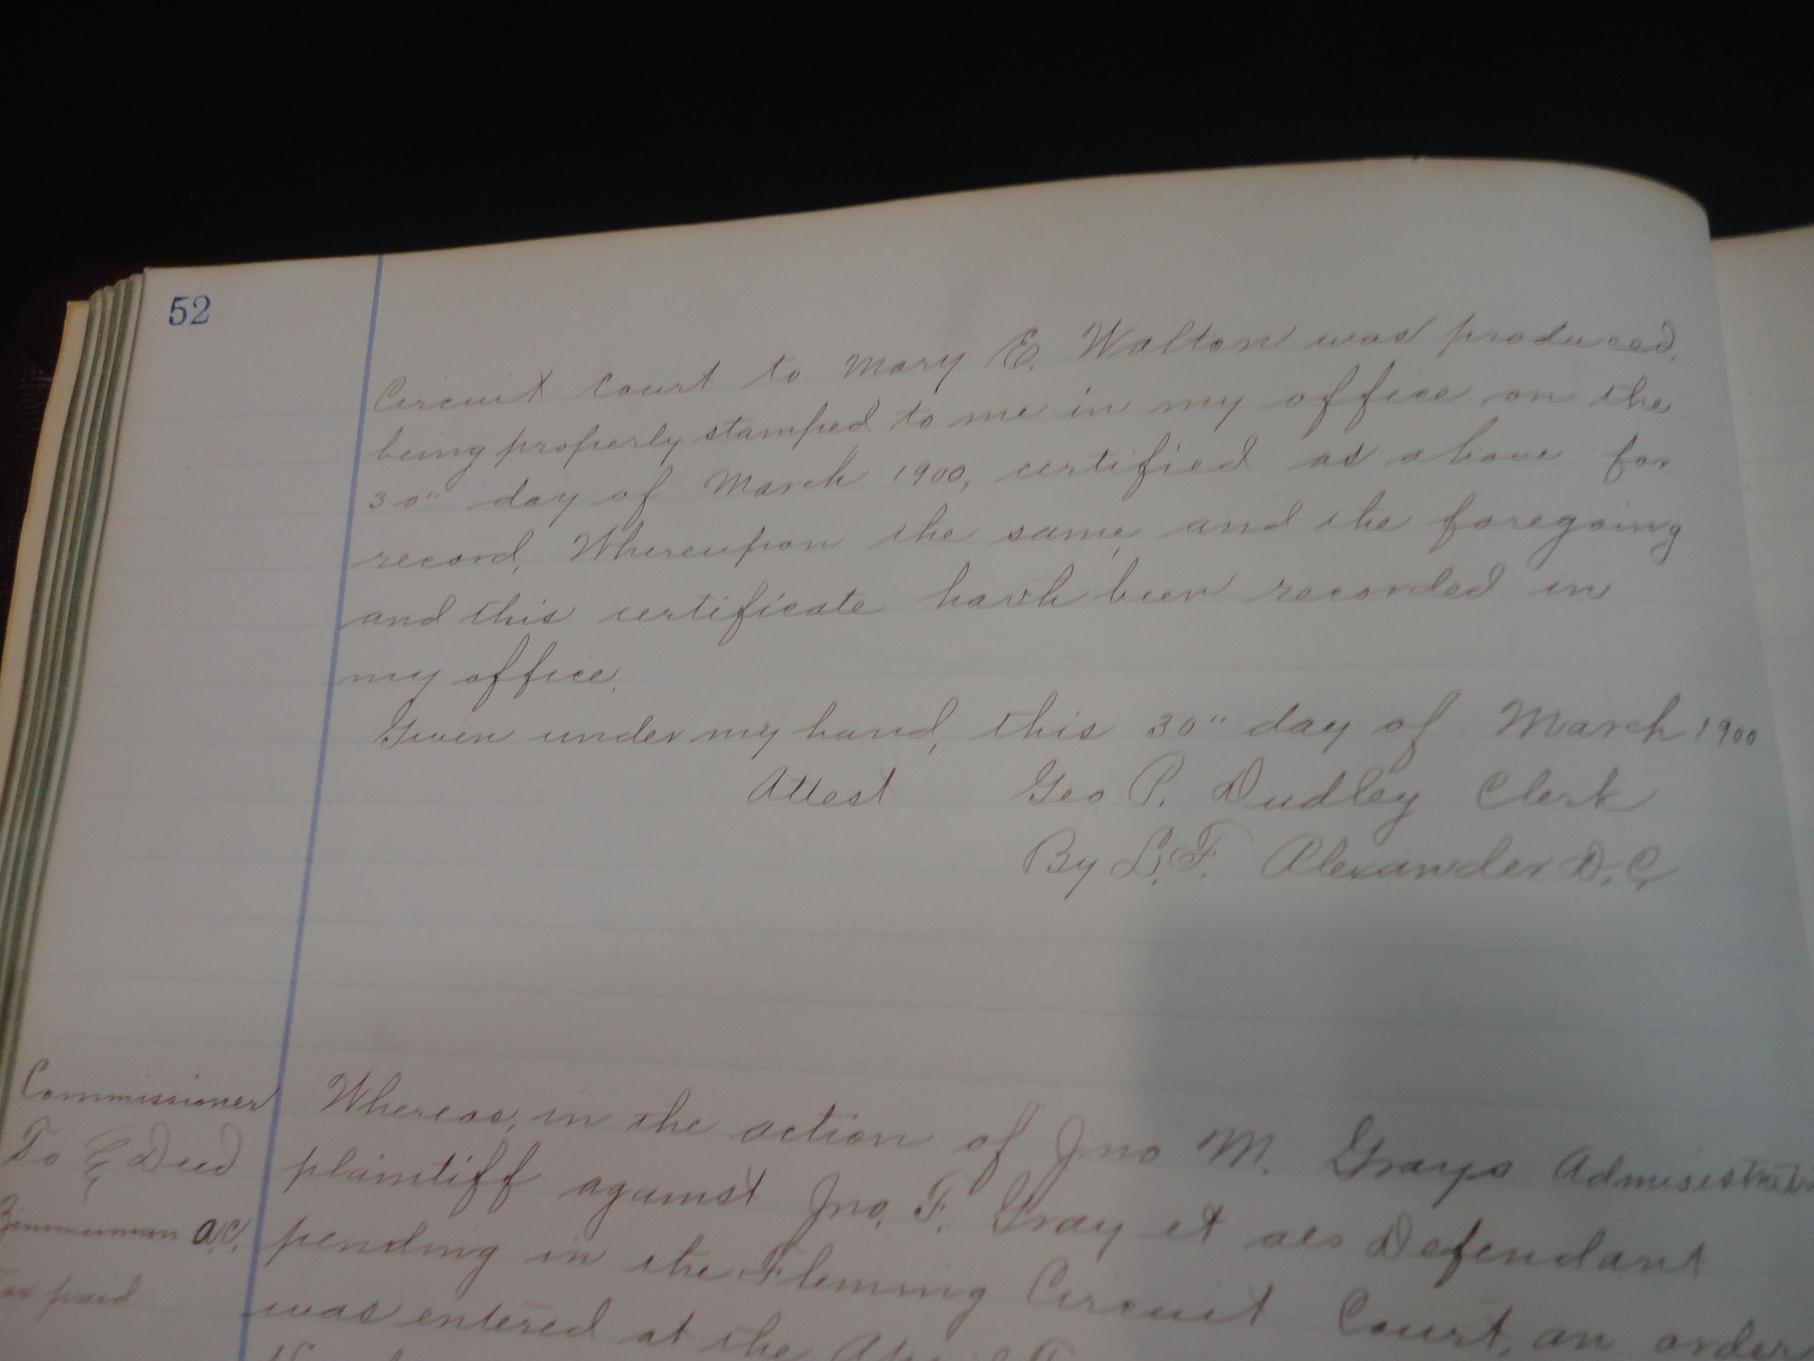 52
Circuit Court to Mary E. Walton was produced,
being properly stamped to me in my office on the
30" day of March 1900, certified as above for
record, Whereupon the same, and the foregoing
and this certificate hath been recorded in
my office.
Given under my hand, this 30" day of March 1900
Attest Geo P. Dudley Clerk
By L.F. Alexander D.C.
Commissioner
To Deed
Zimmerman A.C.
Tax paid
Whereas, in the action of Jno M. Grays
plaintiff against Jno. F. Gray et als Defendant
pending in the Fleming Circuit Court, an order
was entered at the